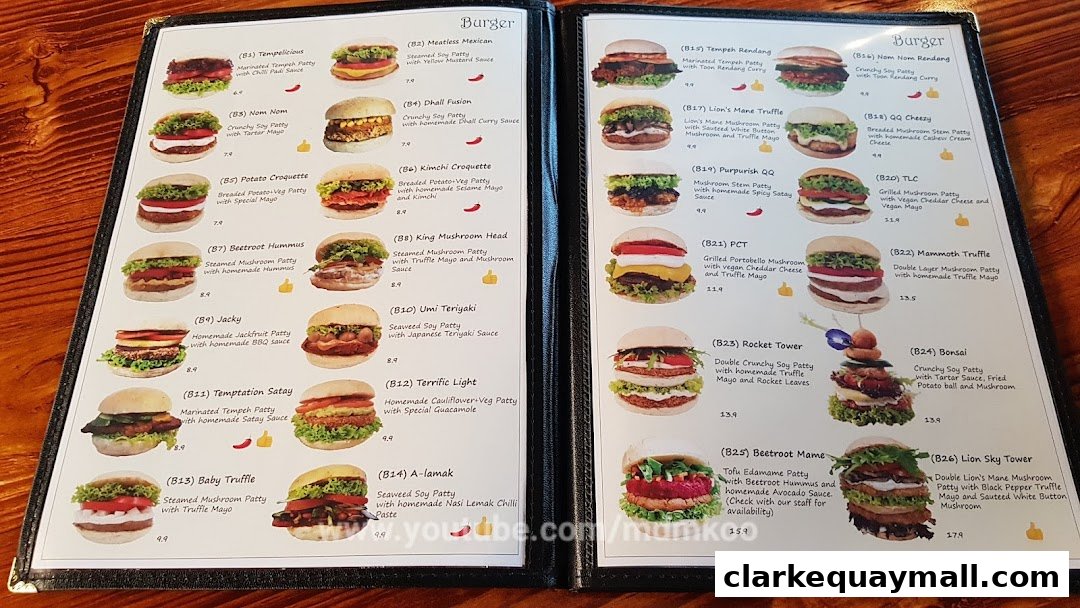 Burger
(B1) Tempelicious
Marinated Tempeh Patty
with Chilli Padi Sauce
6.9
(B2) Meatless Mexican
Steamed Soy Patty
with Yellow Mustard Sauce
7.9
(B3) Nom Nom
Crunchy Soy Patty
with Tartar Mayo
7.9
(B4) Dhall Fusion
Crunchy Soy Patty
with homemade Dhall Curry Sauce
7.9
(B5) Potato Croquette
Breaded Potato+Veg Patty
with Special Mayo
7.9
(B6) Kimchi Croquette
Breaded Potato+Veg Patty
with homemade Sesame Mayo
and Kimchi
8.9
(B7) Beetroot Hummus
Steamed Mushroom Patty
with homemade Hummus
8.9
(B8) King Mushroom Head
Steamed Mushroom Patty
with Truffle Mayo and Mushroom
Sauce
8.9
(B9) Jacky
Homemade Jackfruit Patty
with homemade BBQ sauce
8.9
(B10) Umi Teriyaki
Seaweed Soy Patty
with Japanese Teriyaki Sauce
8.9
(B11) Temptation Satay
Marinated Tempeh Patty
with homemade Satay Sauce
8.9
(B12) Terrific Light
Homemade Cauliflower+Veg Patty
with Special Guacamole
9.9
(B13) Baby Truffle
Steamed Mushroom Patty
with Truffle Mayo
9.9
(B14) A-lamak
Seaweed Soy Patty
with homemade Nasi Lemak Chilli
Paste
9.9
Burger
(B15) Tempeh Rendang
Marinated Tempeh Patty
with Toon Rendang Curry
9.9
(B16) Nom Nom Rendang
Crunchy Soy Patty
with Toon Rendang Curry
9.9
(B17) Lion's Mane Truffle
Lion's Mane Mushroom Patty
with Sauteed White Button
Mushroom and Truffle Mayo
9.9
(B18) QQ Cheezy
Breaded Mushroom Stem Patty
with homemade Cashew Cream
Cheese
9.9
(B19) Purpurish QQ
Mushroom Stem Patty
with homemade Spicy Satay
Sauce
9.9
(B20) TLC
Grilled Mushroom Patty
with Vegan Cheddar Cheese and
Vegan Mayo
11.9
(B21) PCT
Grilled Portobello Mushroom
with vegan Cheddar Cheese
and Truffle Mayo
11.9
(B22) Mammoth Truffle
Double Layer Mushroom Patty
with homemade Truffle Mayo
13.5
(B23) Rocket Tower
Double Crunchy Soy Patty
with homemade Truffle
Mayo and Rocket Leaves
13.9
(B24) Bonsai
Crunchy Soy Patty
with Tartar Sauce, Fried
Potato ball and Mushroom
13.9
(B25) Beetroot Mame
Tofu Edamame Patty
with Beetroot Hummus and
homemade Avocado Sauce.
(Check with our staff for
availability)
15.9
(B26) Lion Sky Tower
Double Lion's Mane Mushroom
Patty with Black Pepper Truffle
Mayo and Sauteed White Button
Mushroom
17.9
www.youtube.com/mdmkoo
clarkequaymall.com